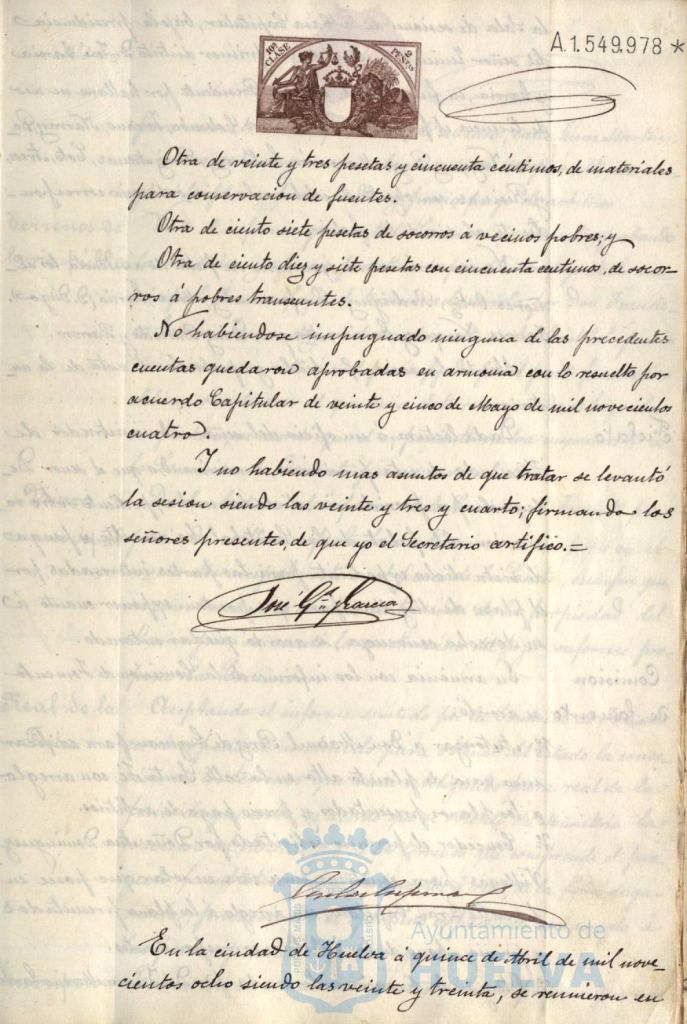 10ª CLASE
2 PESETAS
A.1.549.978 *
Otra de veinte y tres pesetas y cincuenta céntimos, de materiales
para conservacion de fuentes.
Otra de ciento siete pesetas de socorros á vecinos pobres; y
Otra de ciento diez y siete pesetas con cincuenta centimos, de socor-
ros á pobres transeuntes.
No habiendose impugnado ninguna de las precedentes
cuentas quedaron aprobadas en armonia con lo resuelto por
acuerdo Capitular de veinte y cinco de Mayo de mil novecientos
cuatro.
I no habiendo mas asuntos de que tratar se levantó
la sesion siendo las veinte y tres y cuarto; firmando los
señores presentes, de que yo el Secretario certifico.=
José Gª García
Ayuntamiento de
HUELVA
En la ciudad de Huelva á quince de Abril de mil nove-
cientos ocho siendo las veinte y treinta, se reunieron en